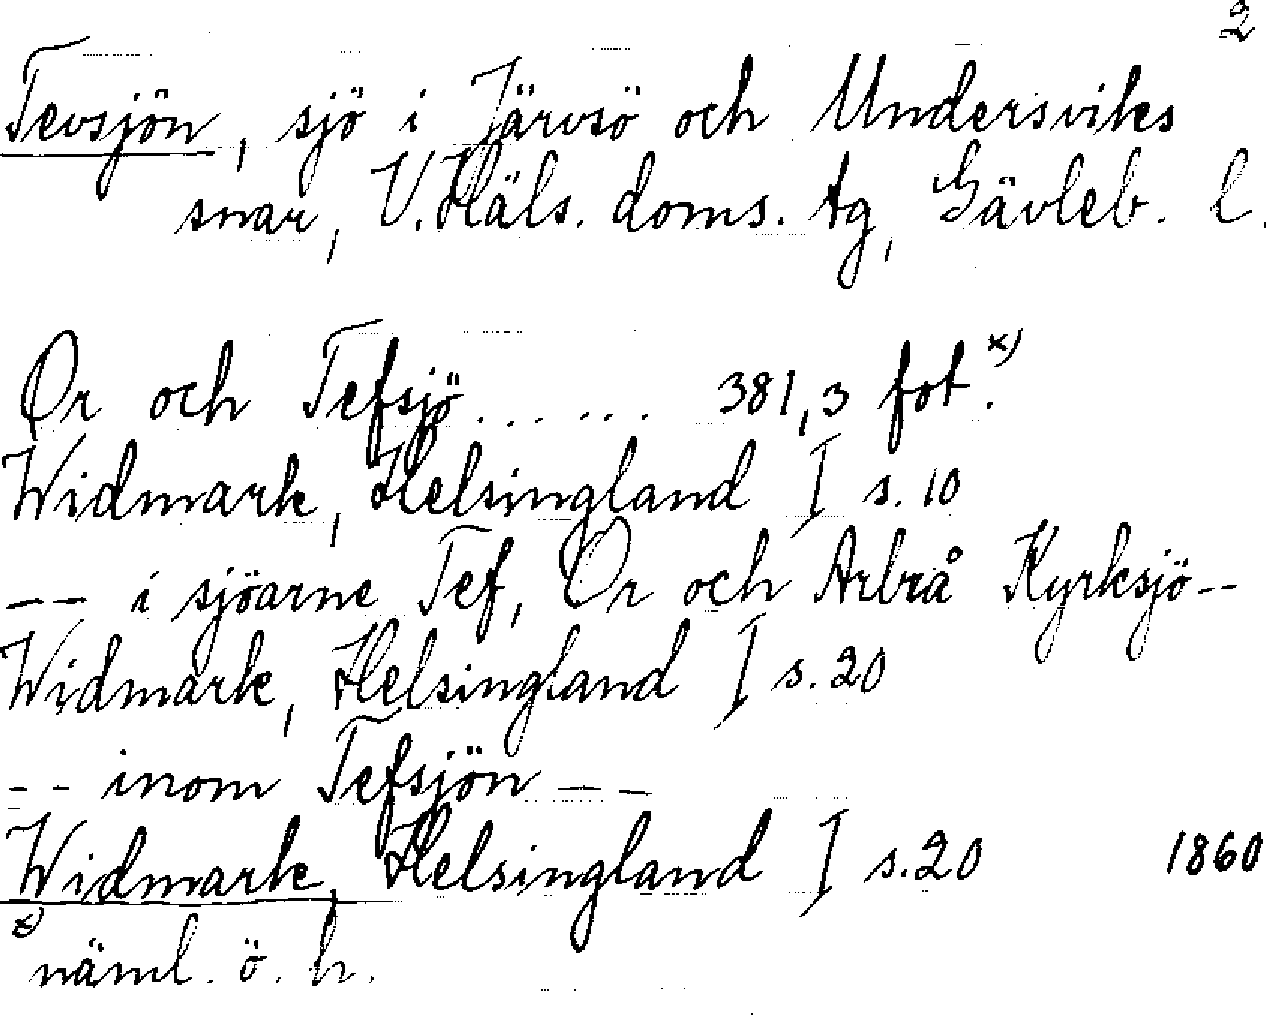 2
Tevsjön, sjö i Järvsö och Undersviks
snar, V. Häls. doms. tg, Gävleb. l.
Or och Tefsjö...... 381,3 fot.x)
Widmark, Helsingland I s. 10
-- i sjöarne Tef, Or och Arbrå Kyrksjö--
Widmark, Helsingland I s. 20
-- inom Tefsjön --
Widmark, Helsingland I s. 20 1860
x)
näml. ö. h.